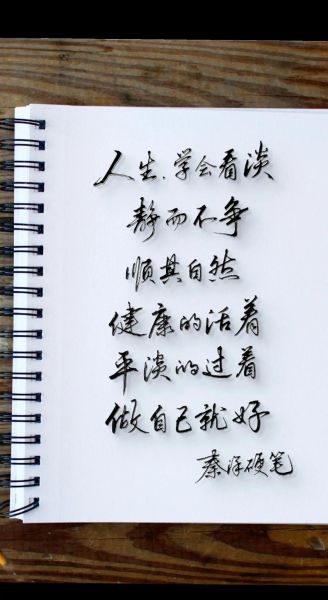 人生.学会看淡
静而不争
顺其自然
健康的活着
平淡的过着
做自己就好
硬笔